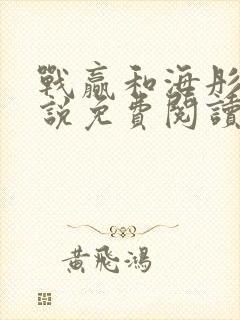 戰贏和海彤
說免費閱讀
黃飛鴻